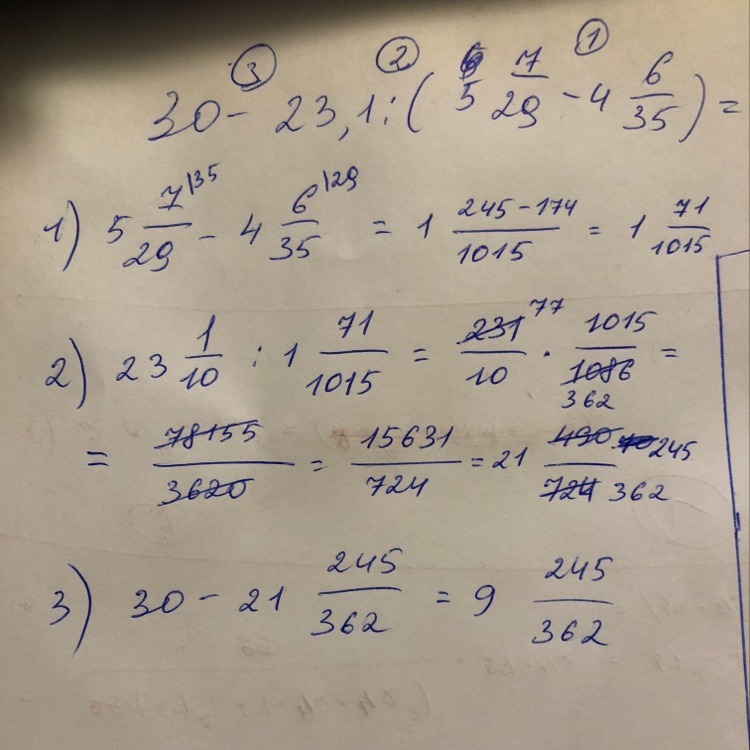 ③ ② ①
30 - 23,1 : ( 5 7/29 - 4 6/35 ) =
1) 5 7/29 \35 - 4 6/35 \29 = 1 (245-174)/1015 = 1 71/1015
2) 23 1/10 : 1 71/1015 = 231/10 77 · 1015/1086 362 =
= 78155/3620 = 15631/724 = 21 490/724 245/362
3) 30 - 21 245/362 = 9 245/362